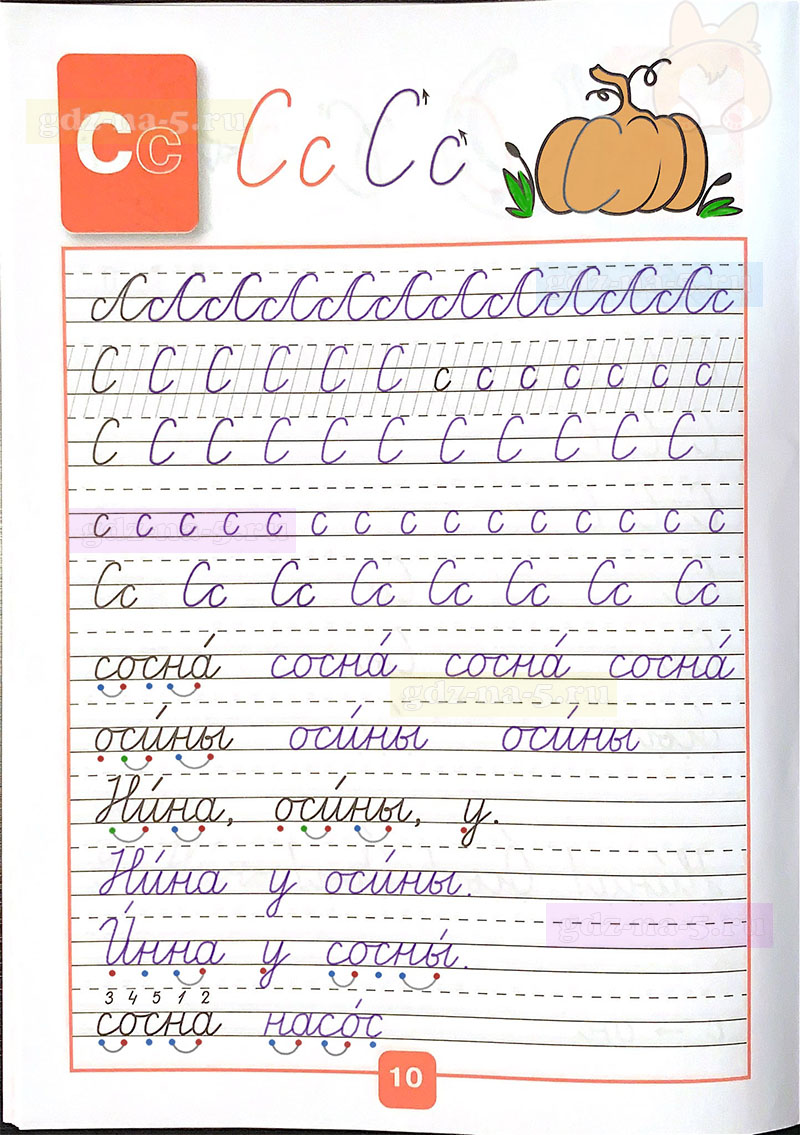 Сс Сс Сс
gdz-na-5.ru
Сс Сс Сс Сс Сс Сс Сс Сс Сс Сс Сс
gdz-na-5.ru
С С С С С С с с с с с с с
С С С С С С С С С С С
с с с с с с с с с с с с с с с
gdz-na-5.ru
Сс Сс Сс Сс Сс Сс Сс Сс
сосна́ сосна́ сосна́ сосна́
gdz-na-5.ru
оси́ны оси́ны оси́ны
Ни́на, оси́ны, у.
Ни́на у оси́ны.
И́нна у сосны́.
gdz-na-5.ru
3 4 5 1 2
сосна насо́с
10